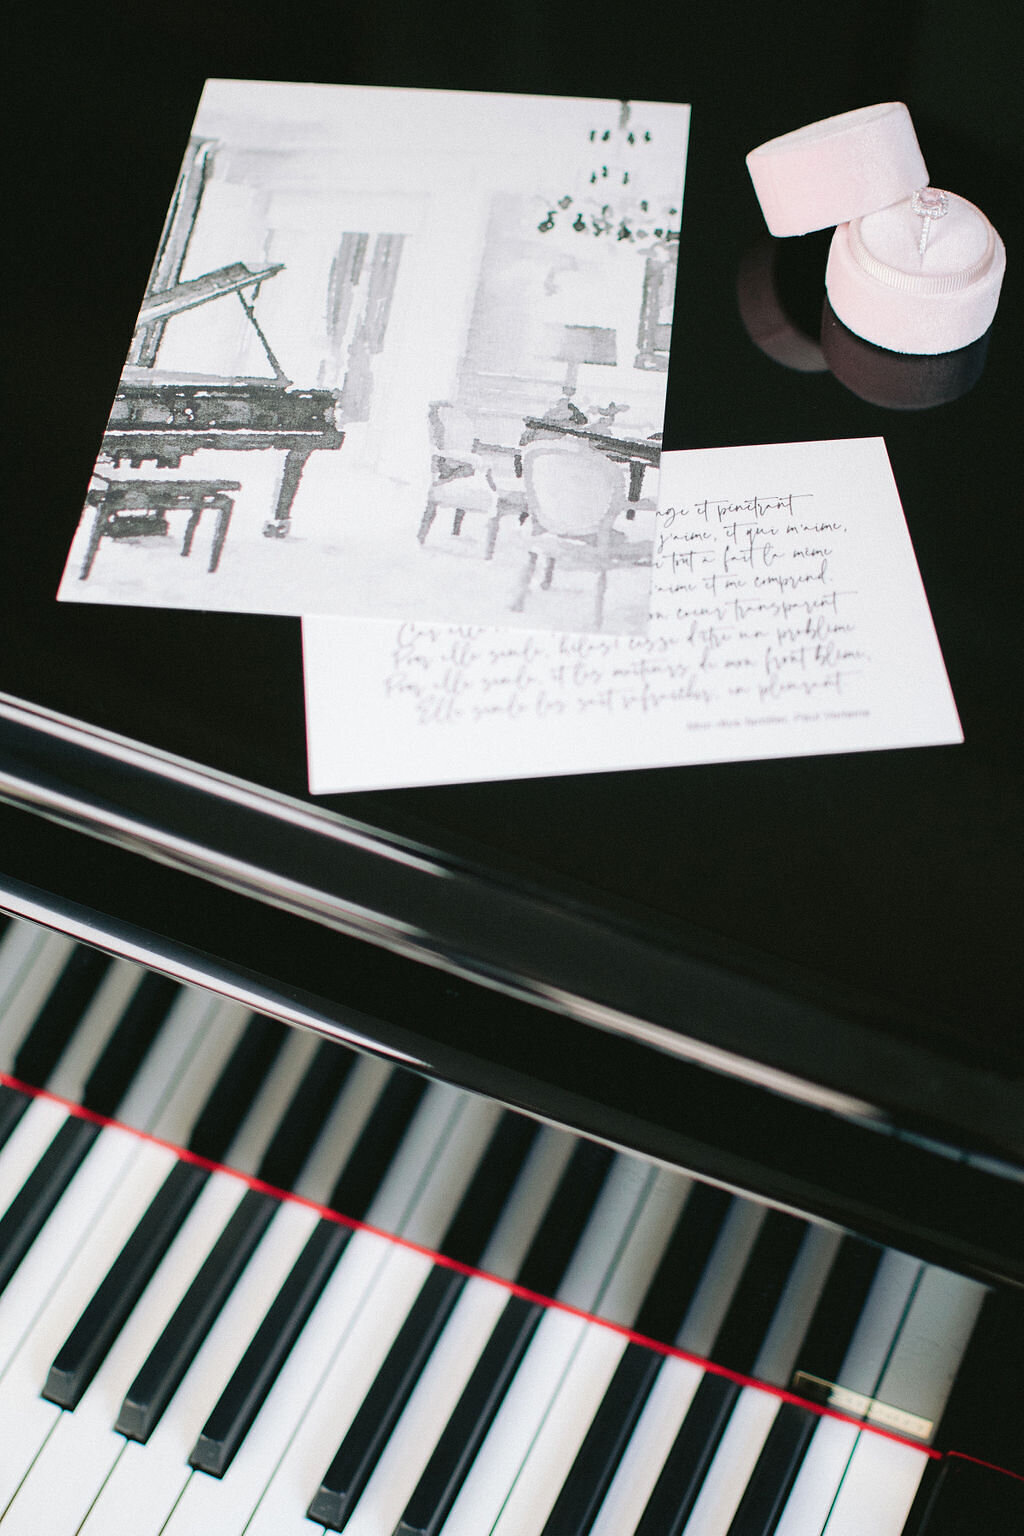 et pénétrant
j'aime, et qui m'aime,
tout à fait la même
m'aime et me comprend.
mon coeur transparent
Car elle
Pour elle seule, hélas! cesse d'être un problème
Pour elle seule, et les moiteurs de mon front blême,
Elle seule les sait rafraîchir, en pleurant
Mon rêve familier, Paul Verlaine